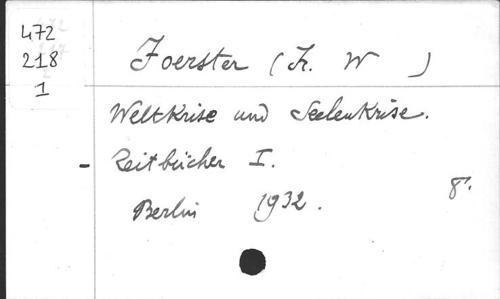 472
218
1
Foerster (Fr. W )
Weltkrise und Seelenkrise.
- Zeitbücher I.
Berlin 1932. 8°.